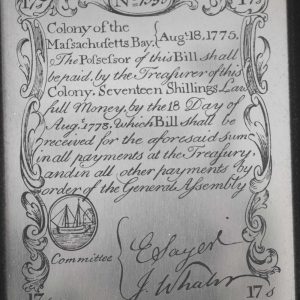 17s No 17s
Colony of the
Massachusetts Bay. { Augt. 18, 1775.
The Possessor of this Bill shall
be paid, by the Treasurer of this
Colony. Seventeen Shillings, Law
full Money, by the 18 Day of
Augt. 1778. Which Bill shall be
received for the aforesaid sum
in all payments at the Treasury,
and in all other payments by
order of the General Assembly
Committee { E Sayer
J. Whaler
17s 17s